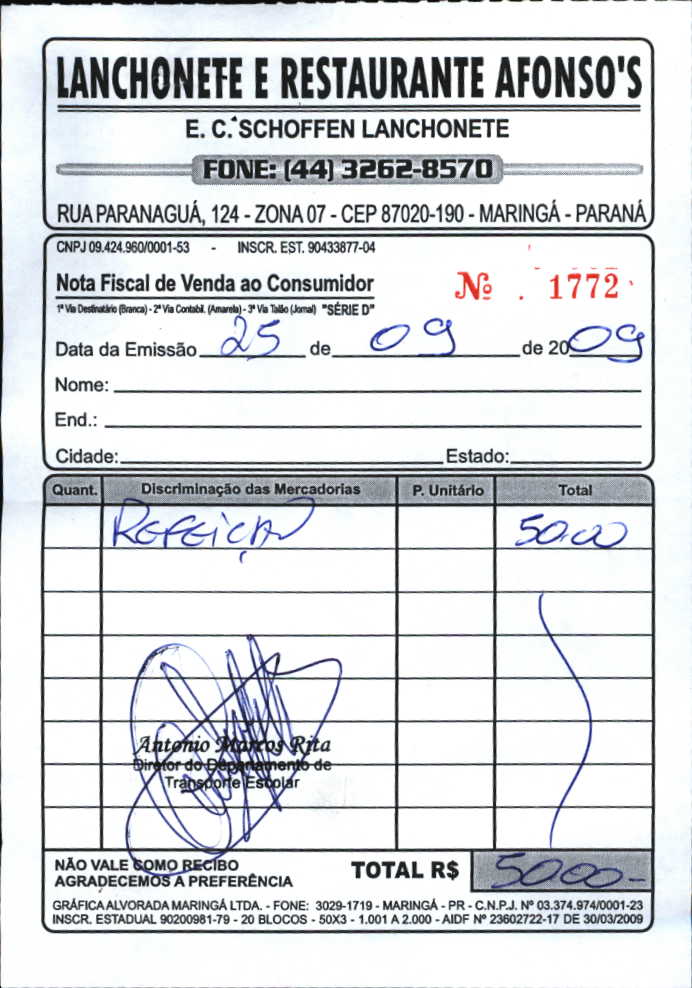 LANCHONETE E RESTAURANTE AFONSO'S
E. C. SCHOFFEN LANCHONETE
FONE: (44) 3262-8570
RUA PARANAGUÁ, 124 - ZONA 07 - CEP 87020-190 - MARINGÁ - PARANÁ
CNPJ 09.424.960/0001-53 - INSCR. EST. 90433877-04
Nota Fiscal de Venda ao Consumidor Nº 1772
1ª Via Destinatário (Branca) - 2ª Via Contabil. (Amarela) - 3ª Via Talão (Jornal) "SÉRIE D"
Data da Emissão 25 de 09 de 2009
Nome:
End.:
Cidade: Estado:
Quant. Discriminação das Mercadorias P. Unitário Total
REFEIÇÃO 50,00
Antonio Marcos Rita
Diretor do Departamento de
Transporte Escolar
NÃO VALE COMO RECIBO
AGRADECEMOS A PREFERÊNCIA
TOTAL R$ 50,00-
GRÁFICA ALVORADA MARINGÁ LTDA. - FONE: 3029-1719 - MARINGÁ - PR - C.N.P.J. Nº 03.374.974/0001-23
INSCR. ESTADUAL 90200981-79 - 20 BLOCOS - 50X3 - 1.001 A 2.000 - AIDF Nº 23602722-17 DE 30/03/2009